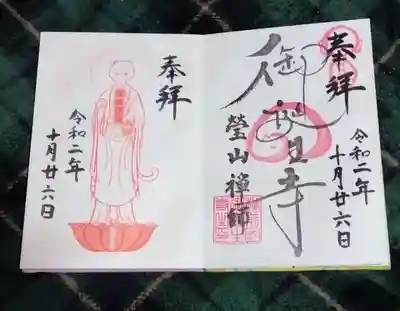 奉拝
令和二年
十月廿六日
御誕生寺
瑩山禅師
奉拝
令和二年
十月廿六日